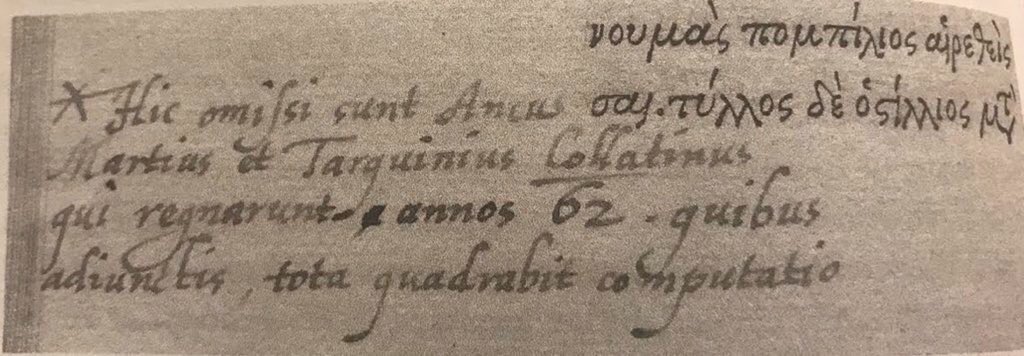 νουμᾶς πομπίλιος αἱρεθεὶς
σαι. τύλλος δὲ ὁςίλλιος μτ̀
X Hic omiſsi sunt Ancus
Martius et Tarquinius Collatinus
qui regnarunt annos 62. quibus
adiunctis, tota quadrabit computatio